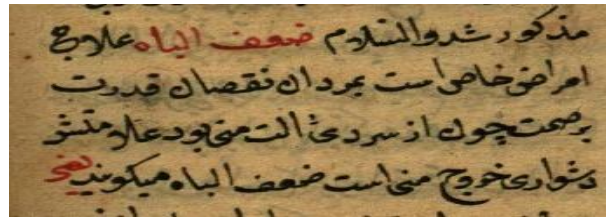 مذکور شد والسلام ضعف الباه علاج
امراض خاص است بمردان نقصان قدرت
بر صحت چون از سردی آلت منی بود علامتش
دشواری خروج منی است ضعف الباه میکویند